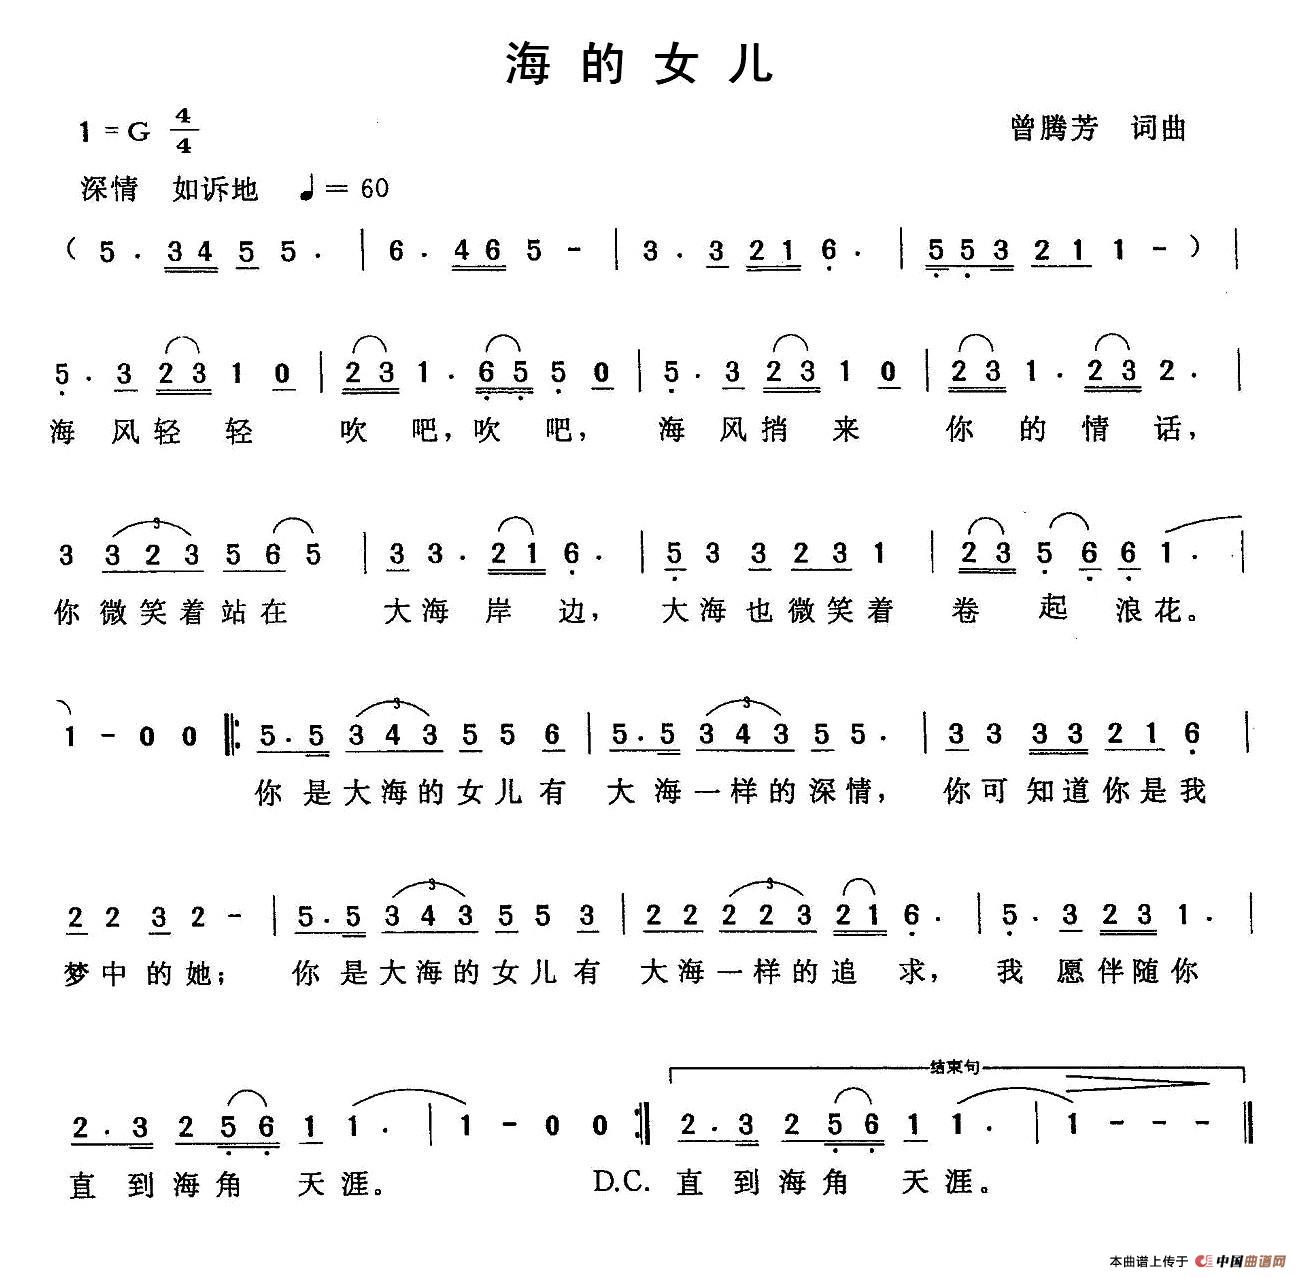 海的女儿
1=G 4/4
曾腾芳 词曲
深情 如诉地 ♩=60
( 5 · 3 4 5 5 · | 6 · 4 6 5 - | 3 · 3 2 1 6 · | 5 5 3 2 1 1 - ) |
5 · 3 2 3 1 0 | 2 3 1 · 6 5 5 0 | 5 · 3 2 3 1 0 | 2 3 1 · 2 3 2 · |
海 风 轻 轻 吹 吧, 吹 吧, 海 风 捎 来 你 的 情 话,
3 3 2 3 5 6 5 | 3 3 · 2 1 6 · | 5 3 3 2 3 1 | 2 3 5 6 6 1 · |
你 微 笑 着 站 在 大 海 岸 边, 大 海 也 微 笑 着 卷 起 浪 花。
1 - 0 0 ‖: 5 · 5 3 4 3 5 5 6 | 5 · 5 3 4 3 5 5 · | 3 3 3 3 2 1 6 |
你 是 大 海 的 女 儿 有 大 海 一 样 的 深 情, 你 可 知 道 你 是 我
2 2 3 2 - | 5 · 5 3 4 3 5 5 3 | 2 2 2 2 3 2 1 6 · | 5 · 3 2 3 1 · |
梦 中 的 她; 你 是 大 海 的 女 儿 有 大 海 一 样 的 追 求, 我 愿 伴 随 你
结束句
2 · 3 2 5 6 1 1 · | 1 - 0 0 :‖ 2 · 3 2 5 6 1 1 · | 1 - - - ‖
直 到 海 角 天 涯。 D.C. 直 到 海 角 天 涯。
本曲谱上传于 中国曲谱网